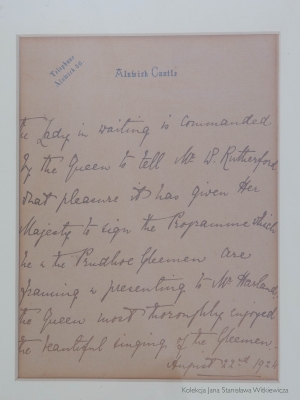 Telephone
Alnwick 20.
Alnwick Castle
the Lady in waiting is commanded
by the Queen to tell Mr W. Rutherford
what pleasure it has given Her
Majesty to sign the Programme which
he & the Prudhoe Gleemen are
framing & presenting to Mr Harland,
the Queen most thoroughly enjoyed
the beautiful singing of the Gleemen.
August 22nd 192
Kolekcja Jana Stanisława Witkiewicza